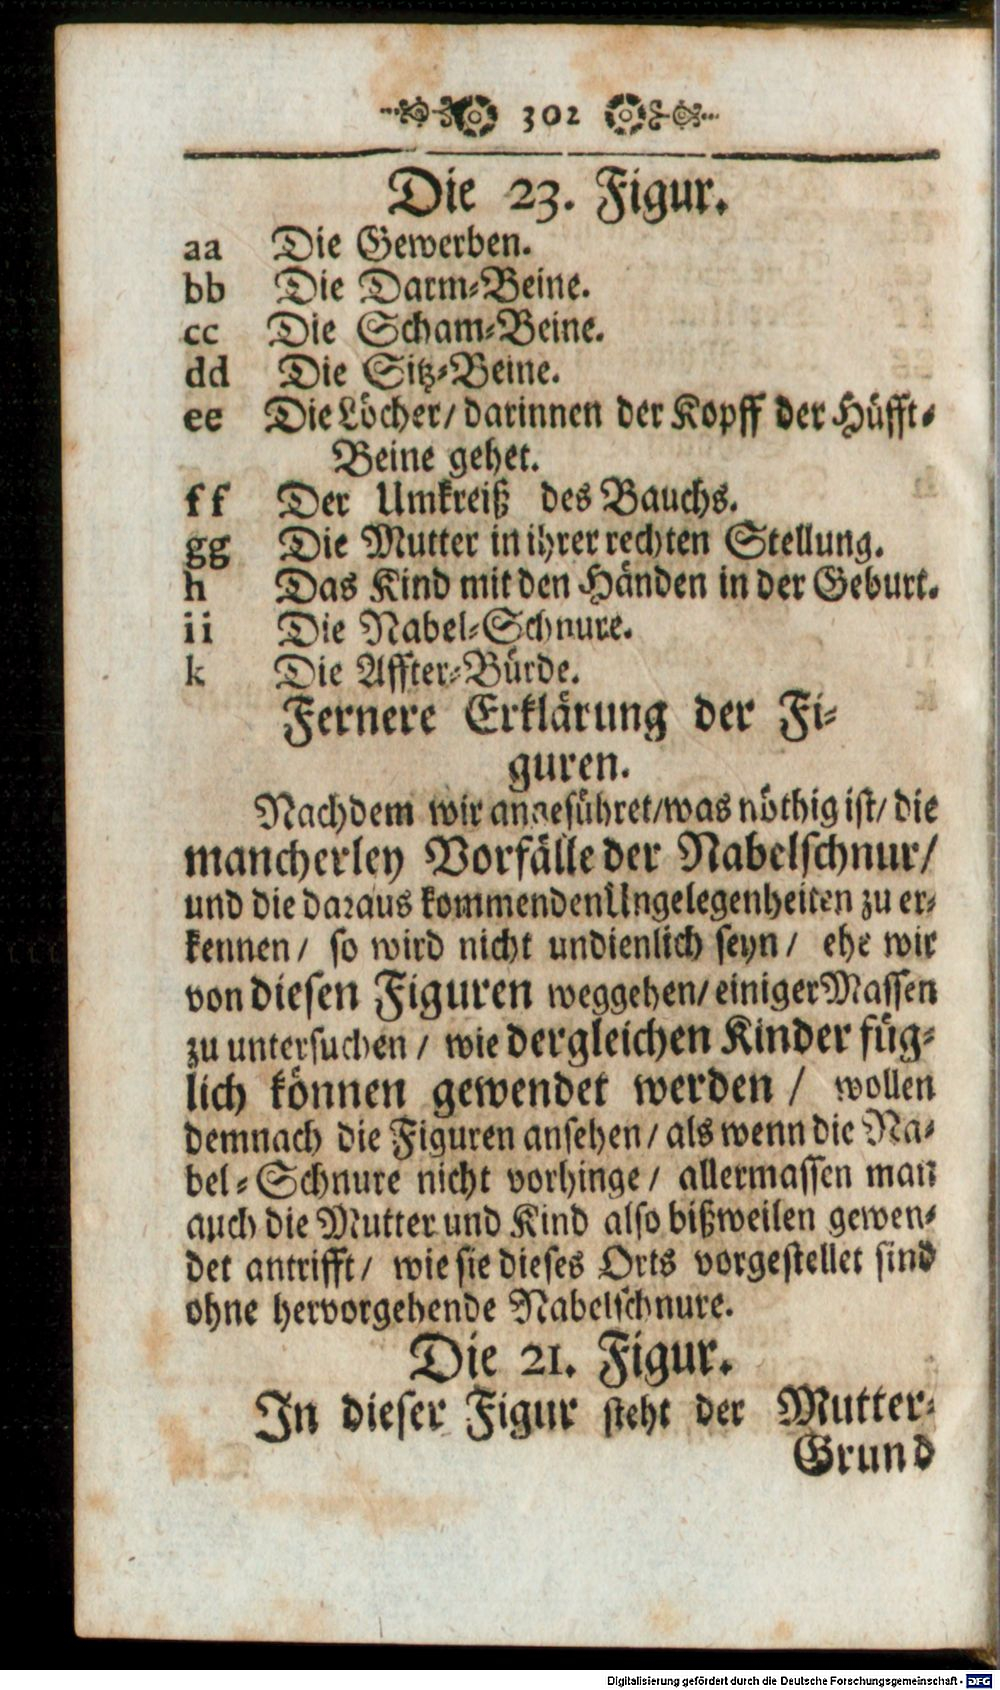 302
Die 23. Figur.
aa Die Gewerben.
bb Die Darm-Beine.
cc Die Scham-Beine.
dd Die Sitz-Beine.
ee Die Löcher/ darinnen der Kopff der Hüfft-
Beine gehet.
ff Der Umkreiß des Bauchs.
gg Die Mutter in ihrer rechten Stellung.
h Das Kind mit den Händen in der Geburt.
ii Die Nabel-Schnure.
k Die Affter-Bürde.
Fernere Erklärung der Fi-
guren.
Nachdem wir angeführet/was nöthig ist/ die
mancherley Vorfälle der Nabelschnur/
und die daraus kommenden Ungelegenheiten zu er-
kennen/ so wird nicht undienlich seyn/ ehe wir
von diesen Figuren weggehen/ einiger Massen
zu untersuchen/ wie dergleichen Kinder füg-
lich können gewendet werden/ wollen
demnach die Figuren ansehen/ als wenn die Na-
bel-Schnure nicht vorhinge/ allermassen man
auch die Mutter und Kind also bißweilen gewen-
det antrifft/ wie sie dieses Orts vorgestellet sind
ohne hervorgehende Nabelschnure.
Die 21. Figur.
In dieser Figur steht der Mutter-
Grund
Digitalisierung gefördert durch die Deutsche Forschungsgemeinschaft - DFG